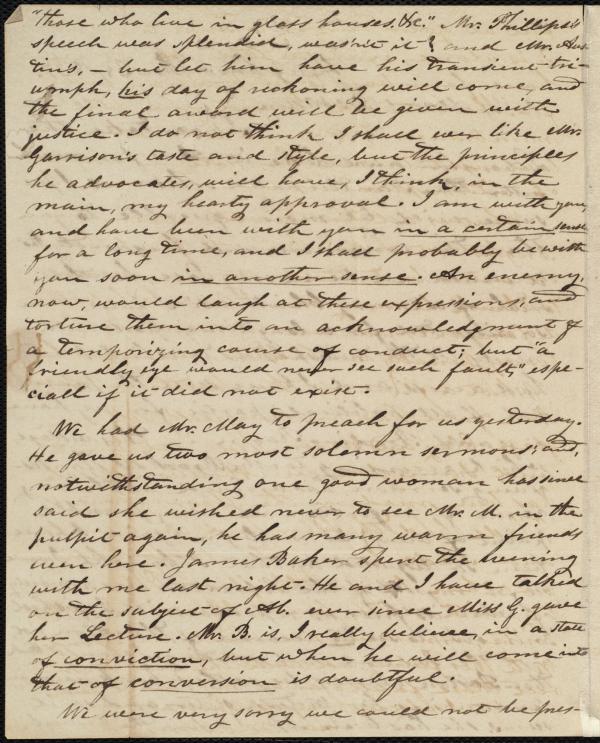 "those who live in glass houses, &c." Mr. Phillips's
speech was splendid, wasn't it? and Mr. Aus-
tin's, — but let him have his transient tri-
umph, his day of reckoning will come, and
the final award will be given with
justice. I do not think I shall ever like Mr.
Garrison's taste and style, but the principles
he advocates, will have, I think, in the
main, my hearty approval. I am with you,
and have been with you in a certain sense
for a long time, and I shall probably be with
you soon in another sense. An enemy,
now, would laugh at these expressions, and
torture them into an acknowledgment of
a temporizing course of conduct; but "a
friendly eye would never see such faults," espe-
ciall if it did not exist.
We had Mr. May to preach for us yesterday.
He gave us two most solemn sermons; and,
notwithstanding one good woman has since
said she wished never to see Mr. M. in the
pulpit again, he has many warm friends
even here. James Baker spent the evening
with me last night. He and I have talked
on the subject of Ab. ever since Miss G. gave
her Lecture. Mr. B. is, I really believe, in a state
of conviction, but when he will come into
that of conversion is doubtful.
We were very sorry we could not be pres-